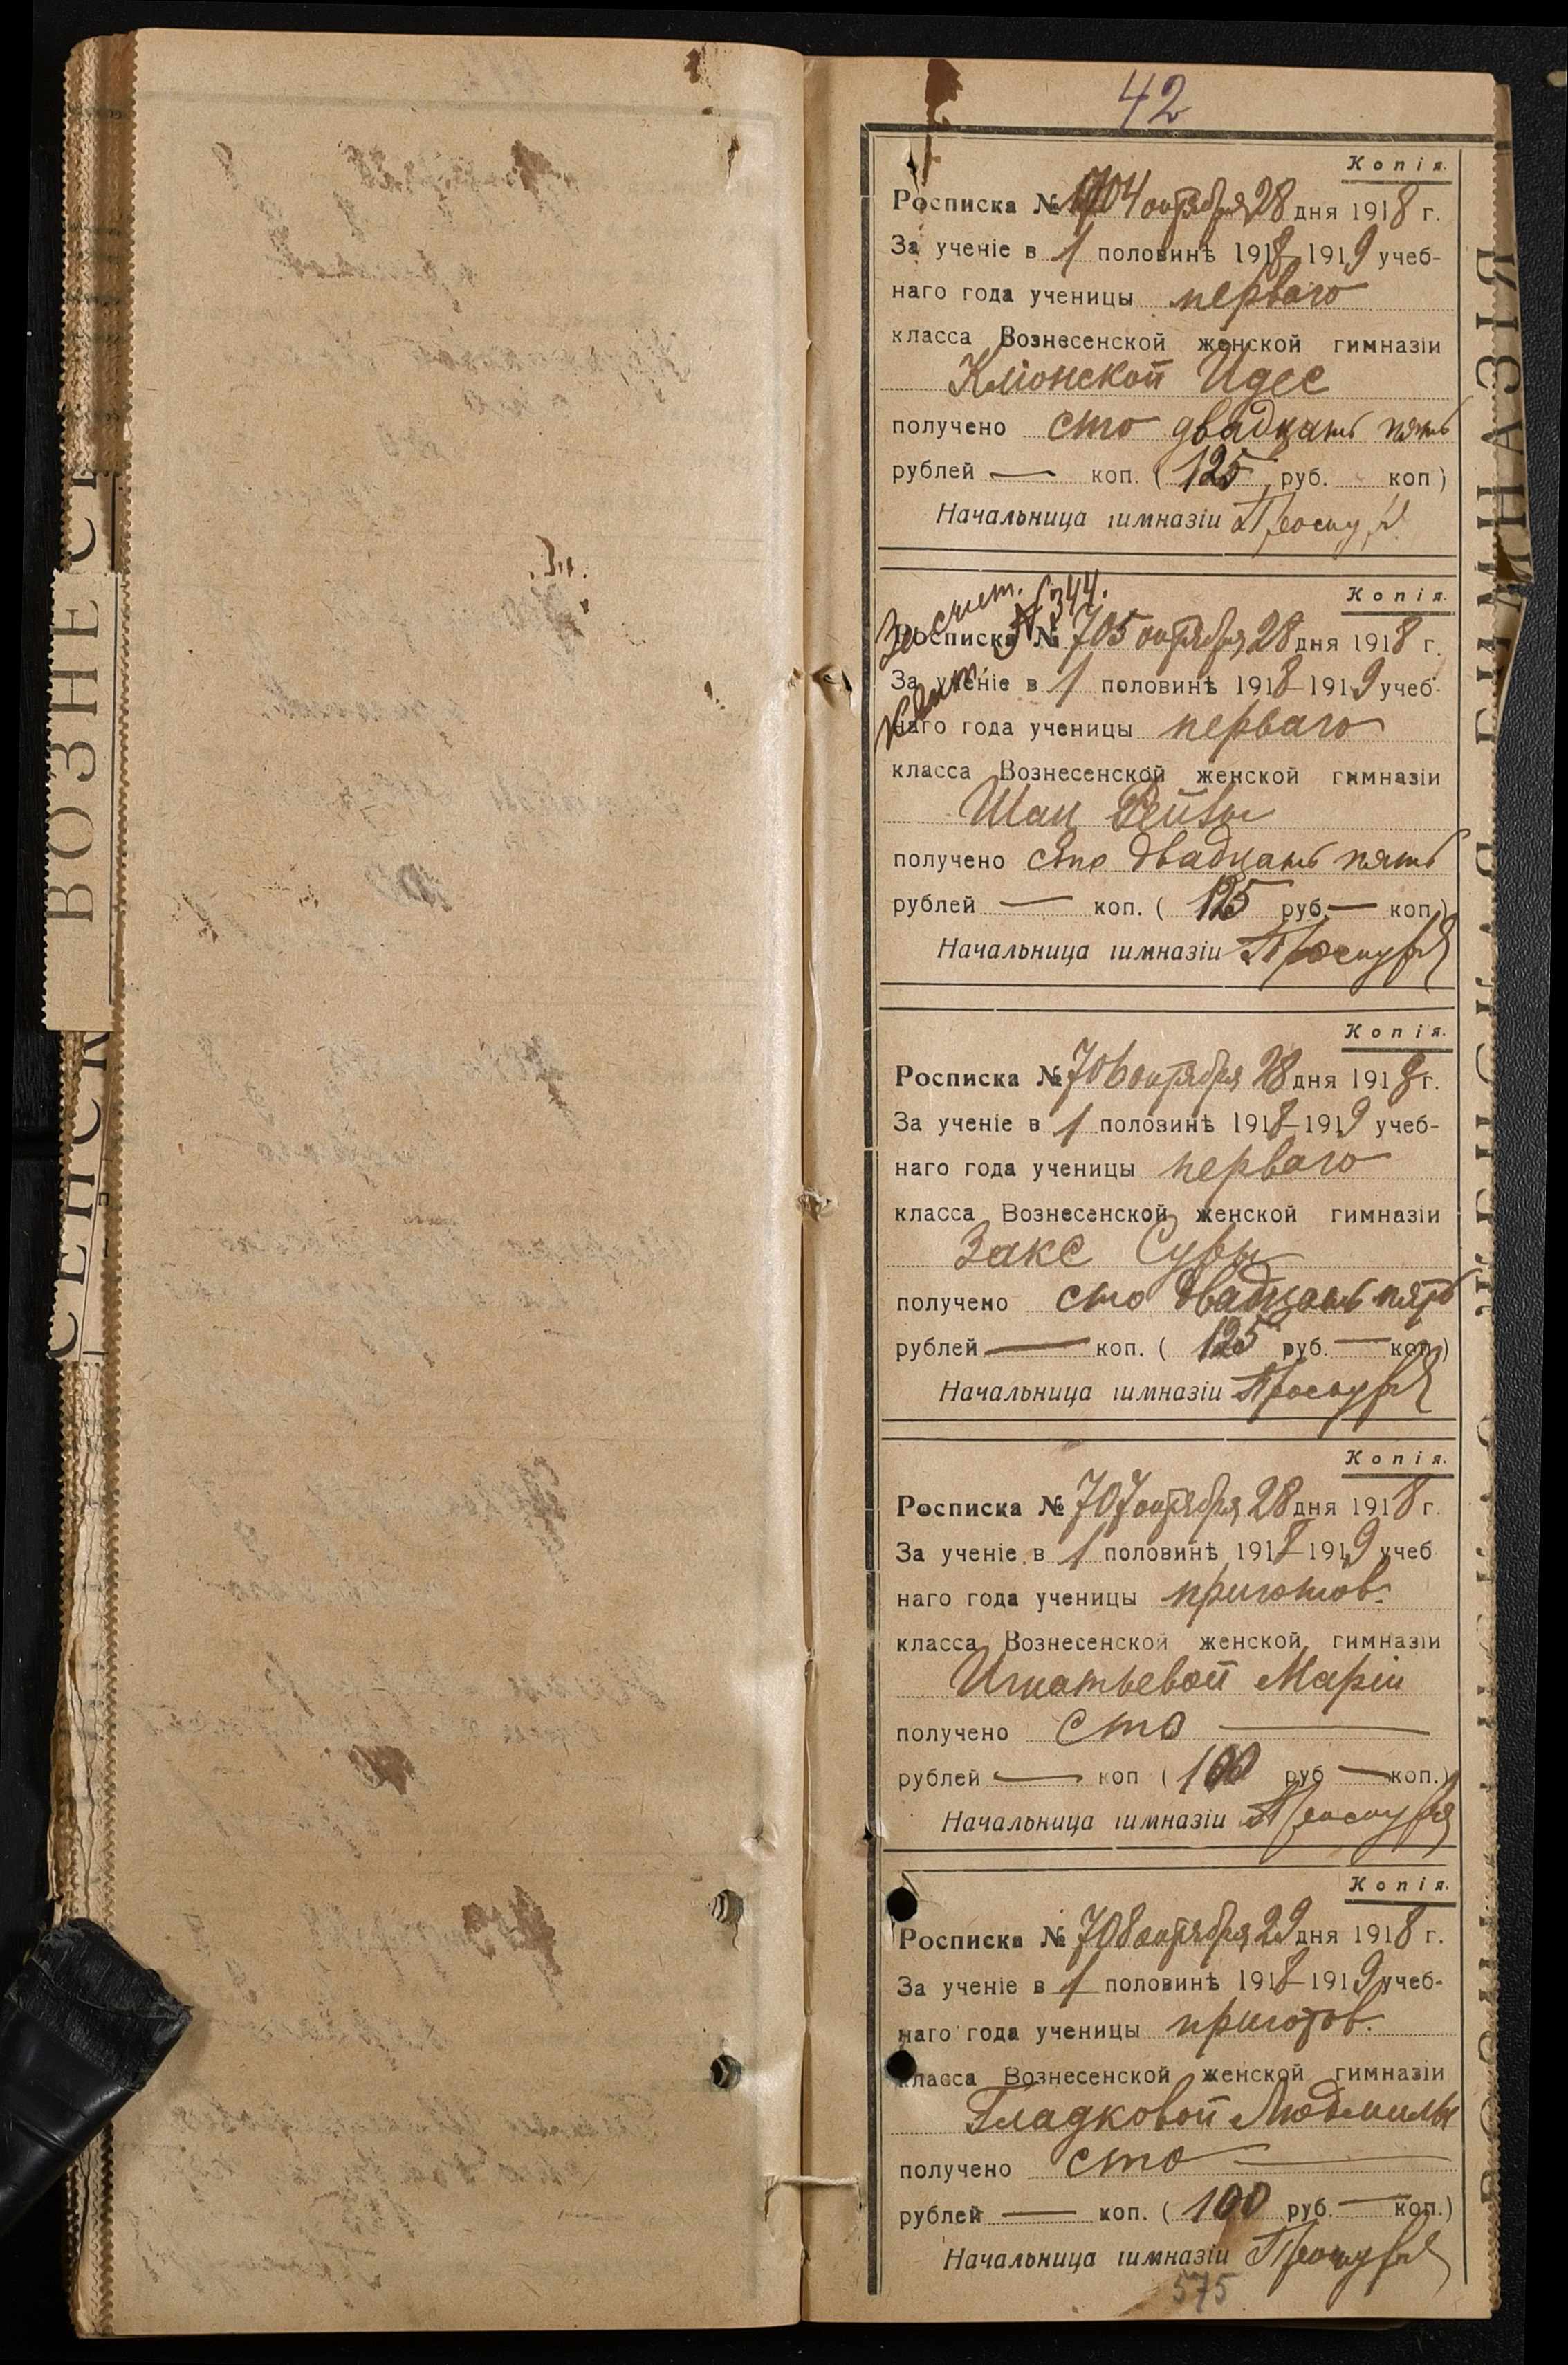 ВОЗНЕС
СЕНСК
42
Копія.
Росписка № 1704 октября 28 дня 1918 г.
За ученіе в 1 половинѣ 1918-1919 учеб-
наго года ученицы перваго
класса Вознесенской женской гимназіи
Кліонской Идес
получено сто двадцать пять
рублей — коп. (125 руб. коп)
Начальница гимназіи
Засчит.
Квит. № 344.
Копія.
Росписка № 705 октября 28 дня 1918 г.
За ученіе в 1 половинѣ 1918-1919 учеб-
наго года ученицы перваго
класса Вознесенской женской гимназіи
Шац Бейлы
получено сто двадцать пять
рублей — коп. (125 руб. — коп.)
Начальница гимназіи
Копія.
Росписка № 706 октября 28 дня 1918 г.
За ученіе в 1 половинѣ 1918-1919 учеб-
наго года ученицы перваго
класса Вознесенской женской гимназіи
Закс Суры
получено сто двадцать пять
рублей — коп. (125 руб. — коп.)
Начальница гимназіи
Копія.
Росписка № 707 октября 28 дня 1918 г.
За ученіе в 1 половинѣ 1918-1919 учеб
наго года ученицы приготов.
класса Вознесенской женской гимназіи
Игнатьевой Маріи
получено сто —
рублей — коп (100 руб — коп.)
Начальница гимназіи
Копія.
Росписка № 708 октября 29 дня 1918 г.
За ученіе в 1 половинѣ 1918-1919 учеб-
наго года ученицы приготов.
класса Вознесенской женской гимназіи
Гладковой Людмилы
получено сто —
рублей — коп. (100 руб. — коп.)
Начальница гимназіи
575